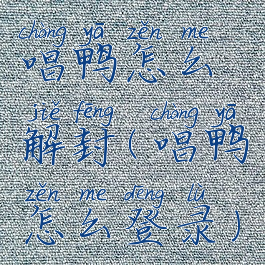 chàng yā zěn me
唱鸭怎么
jiě fēng chàng yā
解封(唱鸭
zěn me dēng lù
怎么登录)